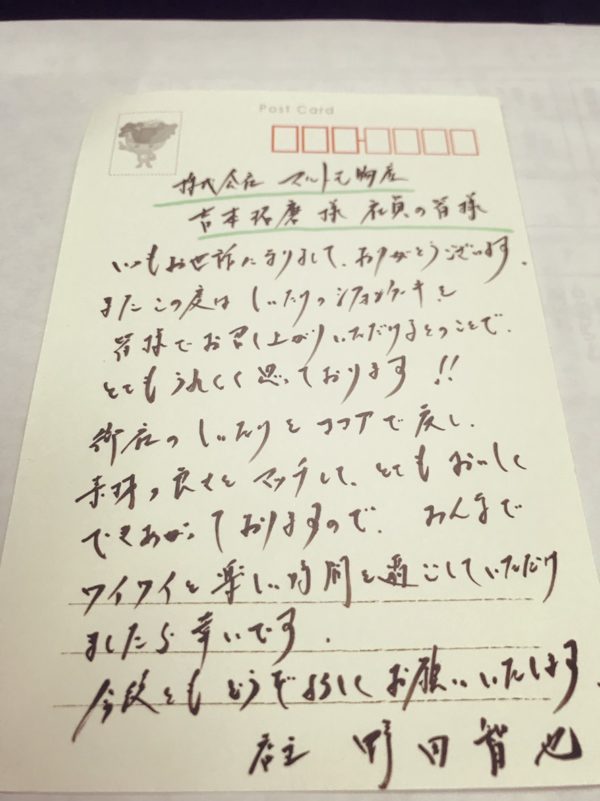 Post Card
株式会社 物産
吉本 様 社員の皆様
いつもお世話になりまして、ありがとうございます。
またこの度は しいたけのシフォンケーキを
皆様でお召し上がりいただけるとのことで、
とてもうれしく思っております!!
御店のしいたけをココアで戻し、
素材の良さとマッチして、とてもおいしく
できあがっておりますので、みんなで
ワイワイと楽しい時間を過ごしていただけ
ましたら幸いです。
今後ともどうぞよろしくお願いいたします。
店主 野田智也